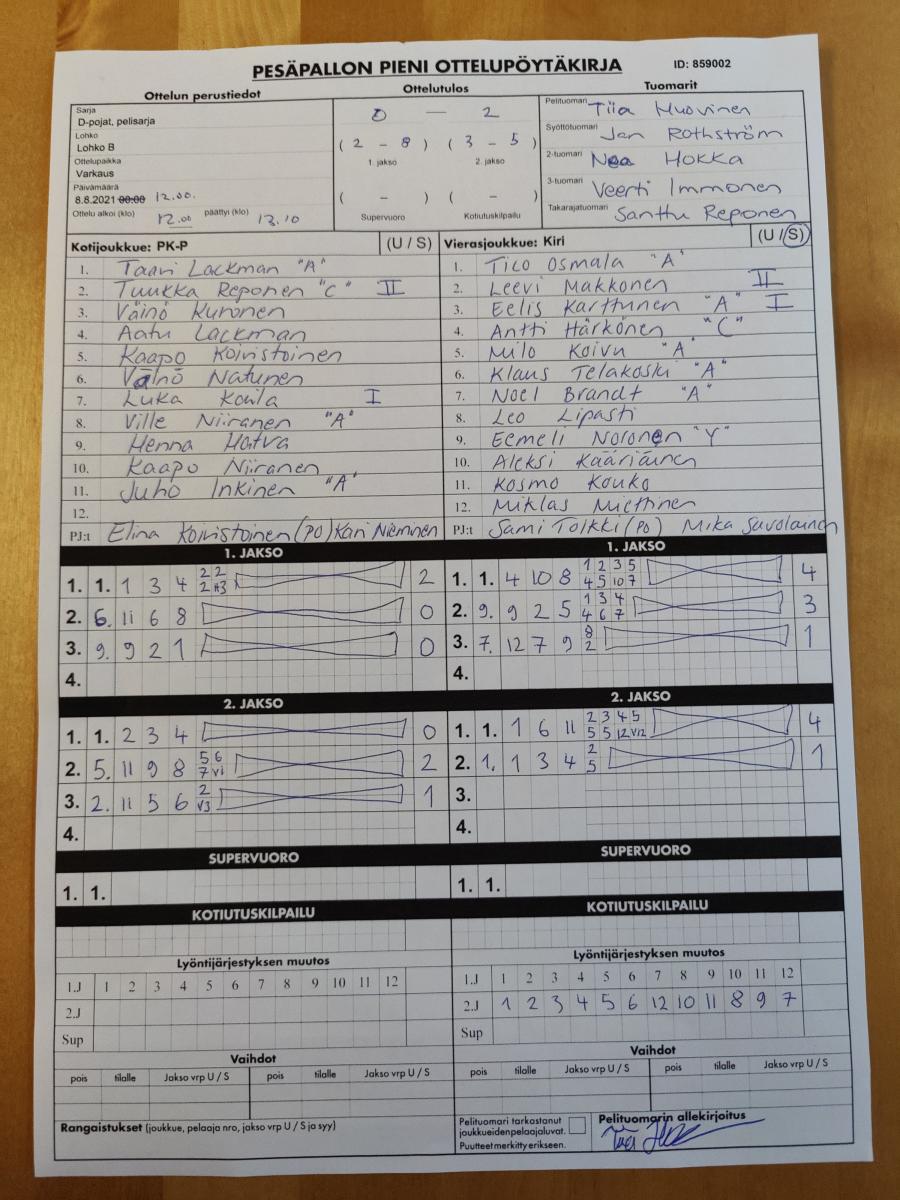 PESÄPALLON PIENI OTTELUPÖYTÄKIRJA ID: 859002
Ottelun perustiedot Ottelutulos Tuomarit
Sarja
D-pojat, pelisarja
Lohko
Lohko B
Ottelupaikka
Varkaus
Päivämäärä
8.8.2021 00:00 12.00.
Ottelu alkoi (klo) 12.00 päättyi (klo) 13.10
0 — 2
( 2 - 8 ) ( 3 - 5 )
1. jakso 2. jakso
( - ) ( - )
Supervuoro Kotiutuskilpailu
Pelituomari Tiia Huovinen
Syöttötuomari Jan Rothström
2-tuomari Nea Hokka
3-tuomari Veerti Immonen
Takarajatuomari Santtu Reponen
Kotijoukkue: PK-P (U / S)
1. Taavi Lackman "A"
2. Tuukka Reponen "C" II
3. Väinö Kuronen
4. Aatu Lackman
5. Kaapo Koivistoinen
6. Väinö Natunen
7. Luka Koila I
8. Ville Niiranen "A"
9. Henna Hatva
10. Kaapo Niiranen
11. Juho Inkinen "A"
12.
PJ:t Elina Koivistoinen (PO) Kari Nieminen
Vierasjoukkue: Kiri (U / S)
1. Tico Osmala "A"
2. Leevi Makkonen II
3. Eelis Karttunen "A" I
4. Antti Härkönen "C"
5. Milo Koivu "A"
6. Klaus Telakoski "A"
7. Noel Brandt "A"
8. Leo Lipasti
9. Eemeli Noronen "Y"
10. Aleksi Kääriäinen
11. Kosmo Kouko
12. Miklas Miettinen
PJ:t Sami Tolkki (PO) Mika Savolainen
1. JAKSO
1. 1. 1 3 4 2 2 2 H3 2
2. 6. 11 6 8 0
3. 9. 9 2 1 0
4.
1. JAKSO
1. 1. 4 10 8 1 2 3 5 4 5 10 7 4
2. 9. 9 2 5 1 3 4 4 6 7 3
3. 7. 12 7 9 8 2 1
4.
2. JAKSO
1. 1. 2 3 4 0
2. 5. 11 9 8 5 6 7 V1 2
3. 2. 11 5 6 2 V3 1
4.
2. JAKSO
1. 1. 1 6 11 2 3 4 5 5 5 12 V12 4
2. 1. 1 3 4 2 5 1
3.
4.
SUPERVUORO
1. 1.
SUPERVUORO
1. 1.
KOTIUTUSKILPAILU
KOTIUTUSKILPAILU
Lyöntijärjestyksen muutos
1.J 1 2 3 4 5 6 7 8 9 10 11 12
2.J
Sup
Lyöntijärjestyksen muutos
1.J 1 2 3 4 5 6 7 8 9 10 11 12
2.J 1 2 3 4 5 6 12 10 11 8 9 7
Sup
Vaihdot
pois tilalle Jakso vrp U / S pois tilalle Jakso vrp U / S
Vaihdot
pois tilalle Jakso vrp U / S pois tilalle Jakso vrp U / S
Rangaistukset (joukkue, pelaaja nro, jakso vrp U / S ja syy)
Pelituomari tarkastanut
joukkueidenpelaajaluvat.
Puutteet merkitty erikseen.
Pelituomarin allekirjoitus